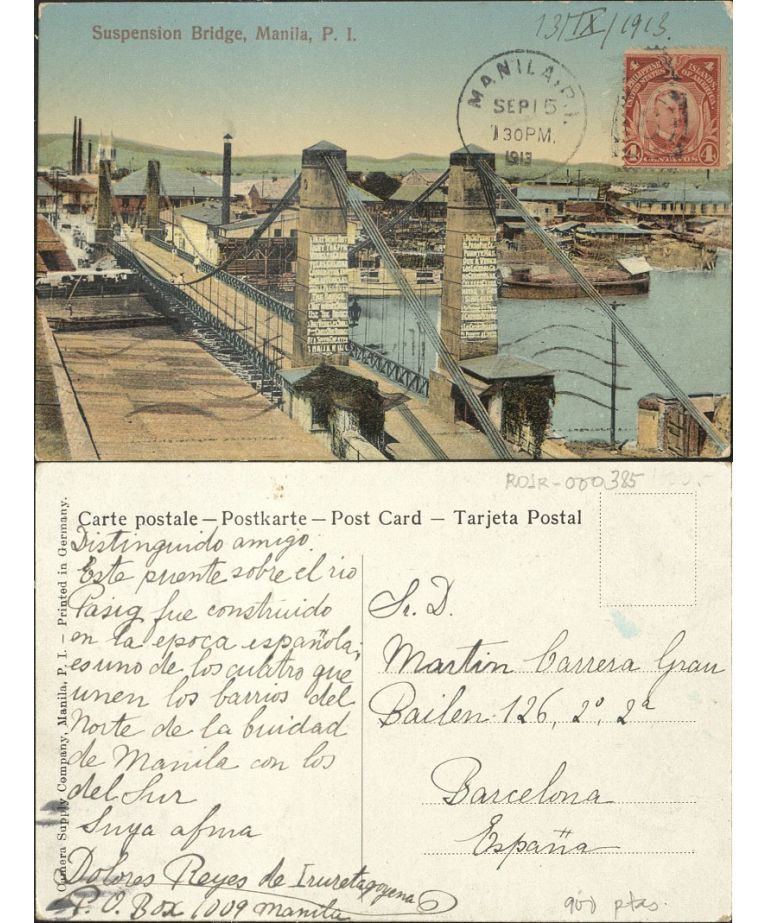 Suspension Bridge, Manila, P. I.
13/IX/1913.
MANILA, P.I.
SEP 15
7 30 PM.
1913
4 4
PHILIPPINE ISLANDS
UNITED STATES OF AMERICA
4 CENTAVOS 4
R01R-000385
Carte postale — Postkarte — Post Card — Tarjeta Postal
Camera Supply Company, Manila, P. I. — Printed in Germany.
Distinguido amigo.
Este puente sobre el rio
Pasig fue construido
en la epoca española;
es uno de los cuatro que
unen los barrios del
Norte de la Ciudad
de Manila con los
del Sur
Suya afma
Dolores Reyes de Iruretagoyena
P. O. Box 1009 Manila
Sr. D.
Martin Carrera Grau
Bailen 126, 2º, 2ª
Barcelona
España
900 ptas.